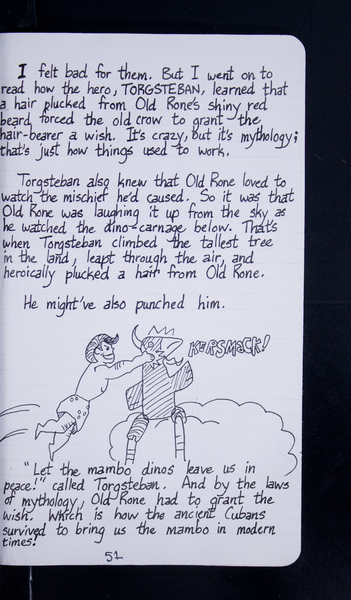 I felt bad for them. But I went on to
read how the hero, TORGSTEBAN, learned that
a hair plucked from Old Rone's shiny red
beard forced the old crow to grant the
hair-bearer a wish. It's crazy, but it's mythology;
that's just how things used to work.
Torgsteban also knew that Old Rone loved to
watch the mischief he'd caused. So it was that
Old Rone was laughing it up from the sky as
he watched the dino-carnage below. That's
when Torgsteban climbed the tallest tree
in the land, leapt through the air, and
heroically plucked a hair from Old Rone.
He might've also punched him.
KERSMACK!
"Let the mambo dinos leave us in
peace!" called Torgsteban. And by the laws
of mythology, Old Rone had to grant the
wish. Which is how the ancient Cubans
survived to bring us the mambo in modern
times!
51